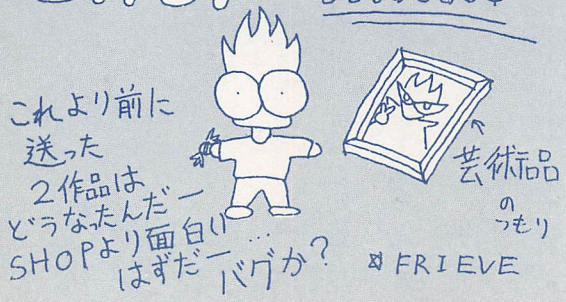 これより前に
送った
2作品は
どうなったんだー
SHOPより面白い
はずだー…
バグか?
芸術品
の
つもり
FRIEVE